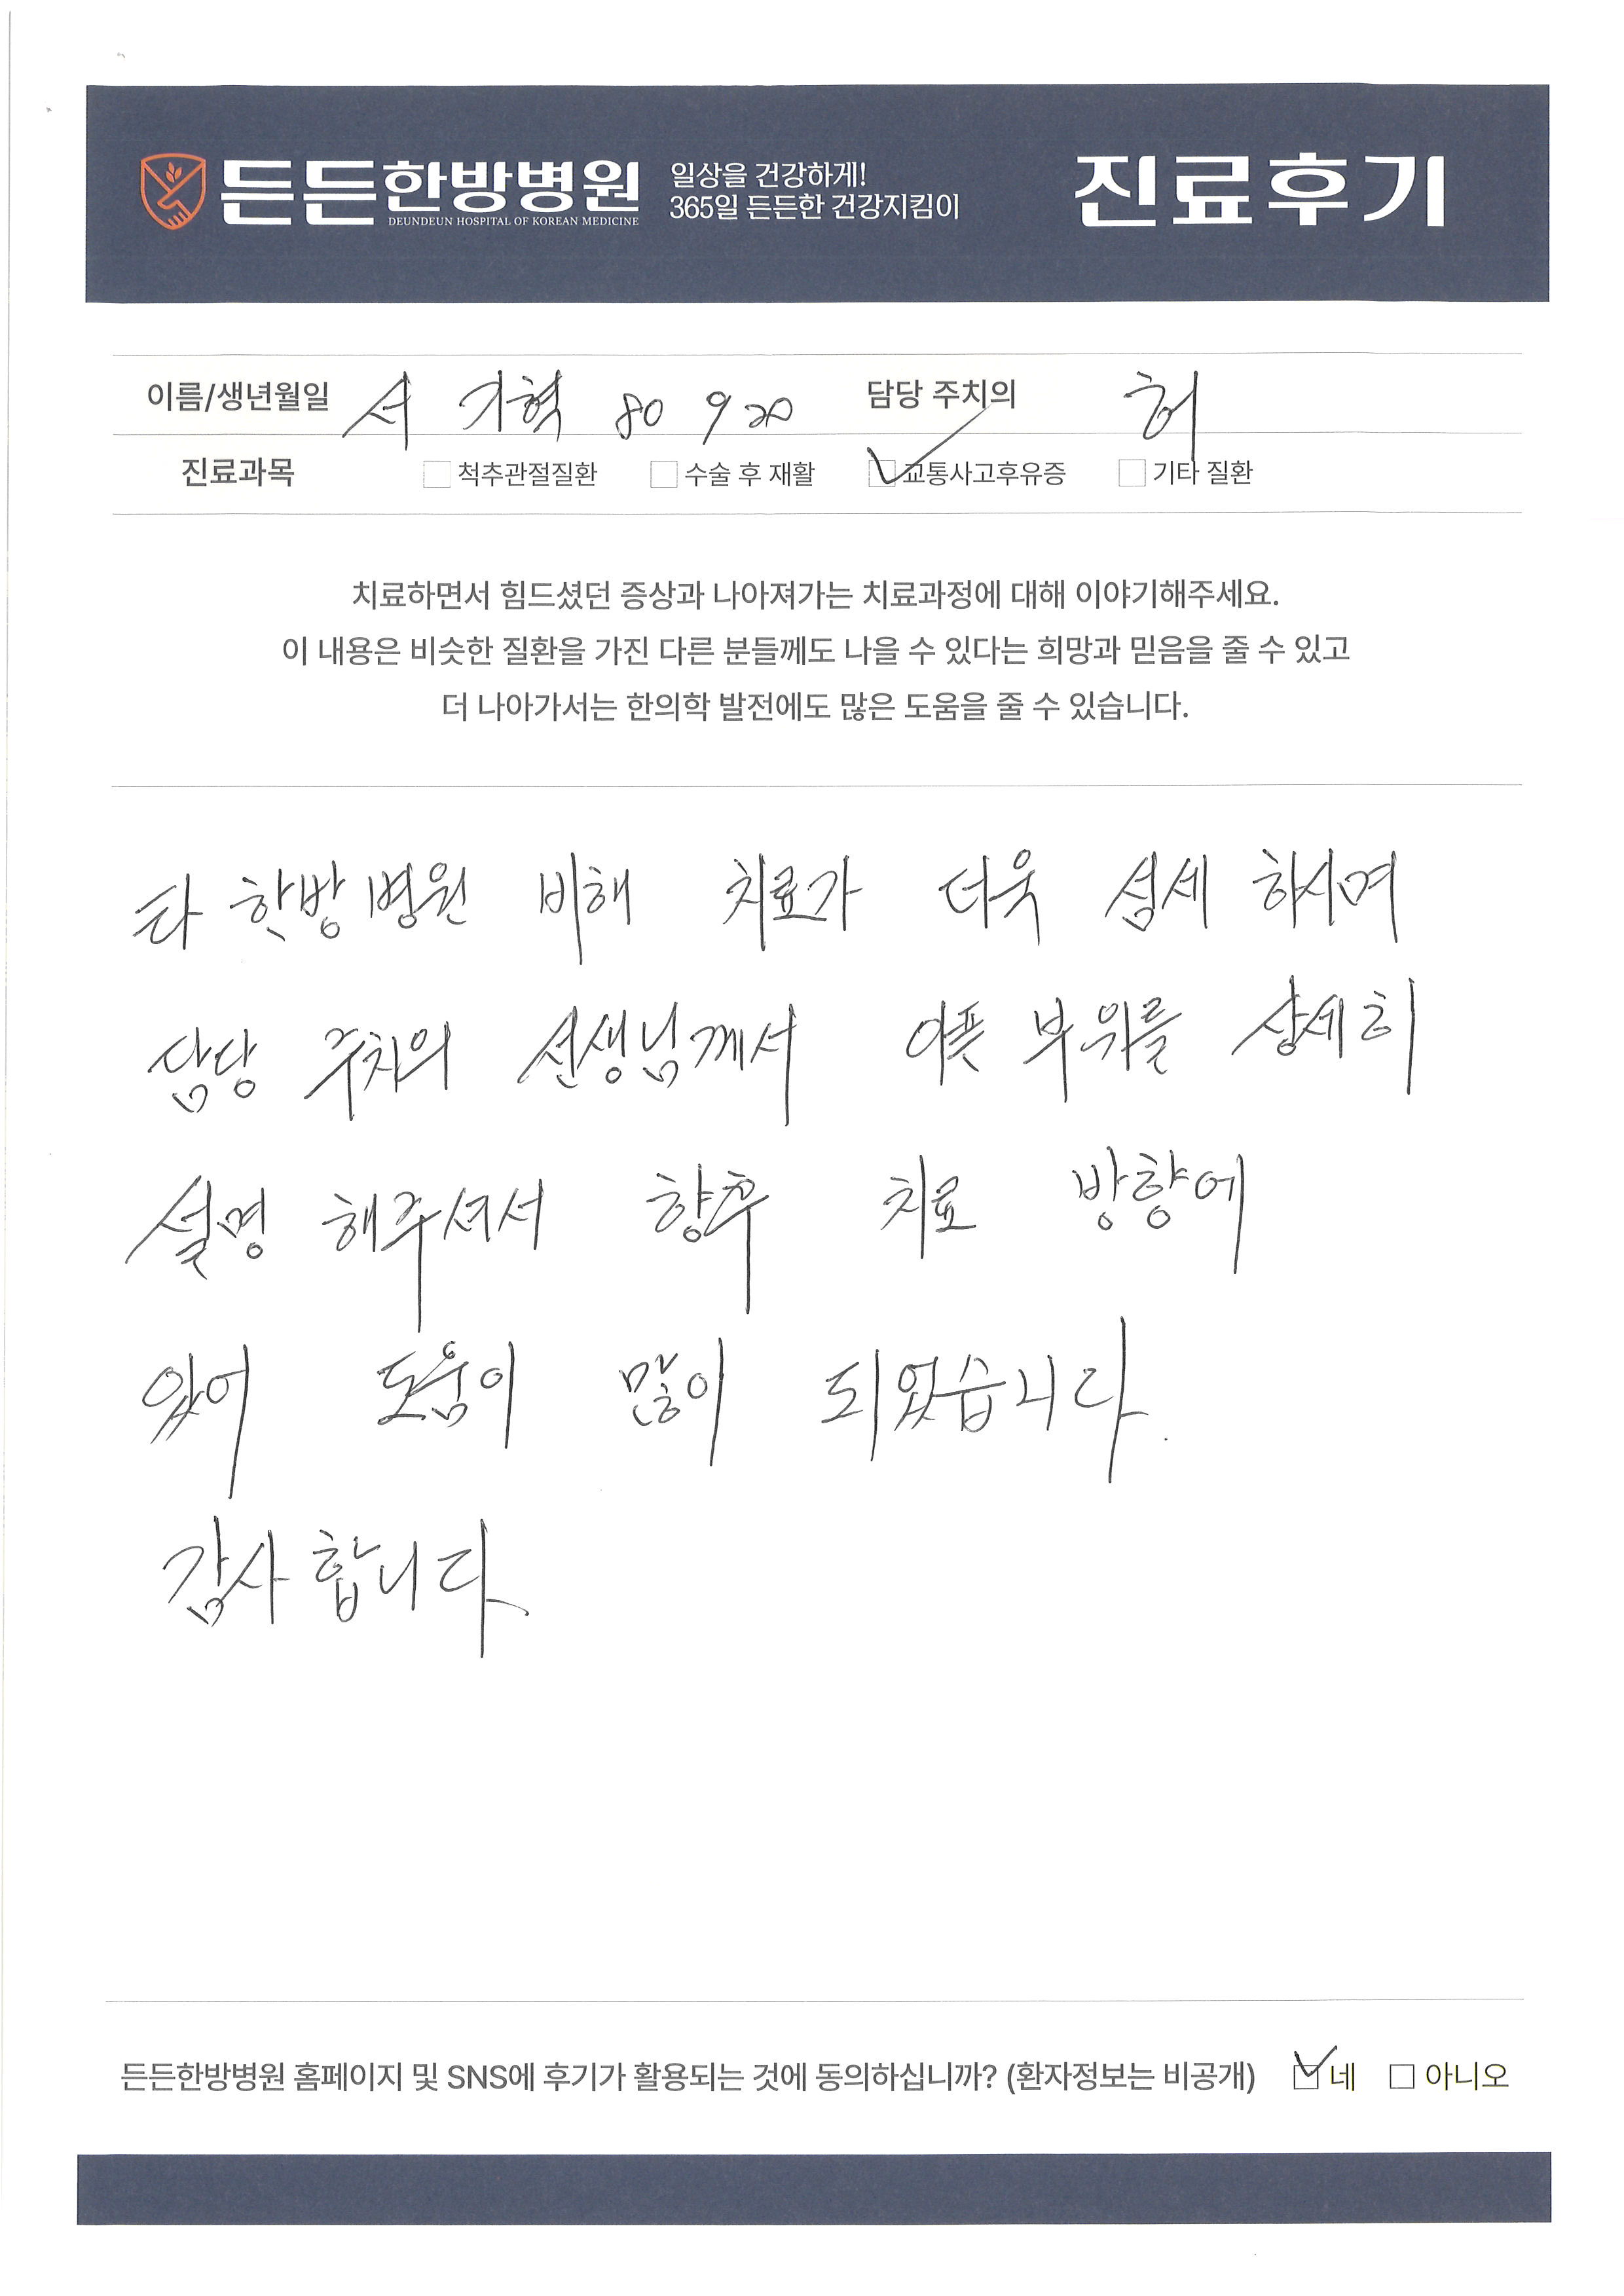 든든한방병원
DEUNDEUN HOSPITAL OF KOREAN MEDICINE
일상을 건강하게!
365일 든든한 건강지킴이
진료후기
이름/생년월일 서 기혁 80 9 20 담당 주치의 허
진료과목 척추관절질환 수술 후 재활 교통사고후유증 기타 질환
치료하면서 힘드셨던 증상과 나아져가는 치료과정에 대해 이야기해주세요.
이 내용은 비슷한 질환을 가진 다른 분들께도 나을 수 있다는 희망과 믿음을 줄 수 있고
더 나아가서는 한의학 발전에도 많은 도움을 줄 수 있습니다.
타 한방병원 비해 치료가 더욱 섬세 하시며
담당 주치의 선생님께서 아픈 부위를 상세히
설명 해주셔서 향후 치료 방향에
있어 도움이 많이 되었습니다.
감사합니다.
든든한방병원 홈페이지 및 SNS에 후기가 활용되는 것에 동의하십니까? (환자정보는 비공개) 네 아니오